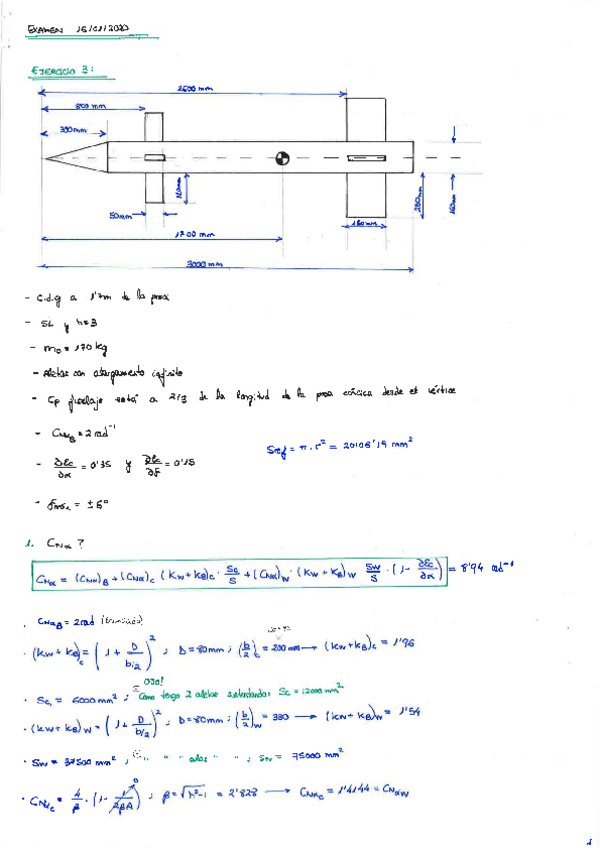 EXAMEN 16/01/2020
EJERCICIO 3:
2500 mm
800 mm
300mm
120mm
50mm
150mm
250mm
160mm
1700 mm
3000 mm
- c.d.g a 1'7m de la proa
- SL y M=3
- mo = 170 kg
- Aletas con alargamiento infinito
- Cp fuselaje está a 2/3 de la longitud de la proa cónica desde el vértice
- CNαB = 2 rad⁻¹
Sref = π · r² = 20106'19 mm²
- ∂εc/∂α = 0'35 y ∂εc/∂δ = 0'15
- δmax = ±5°
1. CNα ?
CNα = (CNα)B + (CNα)c (Kw+KB)c · Sc/S + (CNα)w · (Kw+KB)w · Sw/S · (1 - ∂εc/∂α) = 8'94 rad⁻¹
· CNαB = 2 rad
· (Kw+KB)c = (1 + D/b/2)² ; D=80mm ; (b/2)c = 200mm → (Kw+KB)c = 1'96
OJO!
· Sc1 = 6000 mm² ; Como tengo 2 aletas sustentadoras Sc = 12000 mm²
· (Kw+KB)w = (1 + D/b/2)² ; D=80mm ; (b/2)w = 330 → (Kw+KB)w = 1'54
· Sw = 37500 mm² ; " " " alas " " ; Sw = 75000 mm²
· CNαc = 4/β · (1 - 1/2βA) ; β = √M²-1 = 2'828 → CNαc = 1'4144 = CNαw